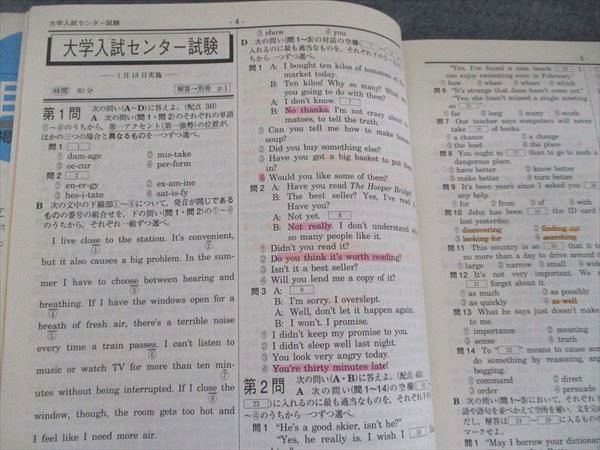 大学入試センター試験
- 4 -
大学入試センター試験
―1月18日実施―
時間 80分
解答→別冊 p.1
第1問 次の問い(A~D)に答えよ。(配点 30)
A 次の問い(問1・問2)のそれぞれの単語
①~④のうちから,第一アクセント(第一強勢)の位置が,
ほかの三つの場合と異なるものを一つずつ選べ。
問1 1
① dam-age ② mis-take
③ oc-cur ④ per-form
問2 2
① en-er-gy ② ex-am-ine
③ hes-i-tate ④ sat-is-fy
B 次の文中の下線部①~⑧について,発音が同じである
ものの番号の組合せを,下の問い(問1・問2)の①~④
のうちから,それぞれ一組ずつ選べ。
I live close to the station. It's convenient,
① ②
but it also causes a big problem. In the sum-
mer I have to choose between hearing and
③
breathing. If I have the windows open for a
④
breath of fresh air, there's a terrible noise
⑤
every time a train passes. I can't listen to
⑥
music or watch TV for more than ten min-
⑦
utes without being interrupted. If I close the
⑧
window, though, the room gets too hot and
I feel like I need more air.
③ show ④ you
D 次の問い(問1~3)の対話の空欄
に入れるのに最も適当なものを,それぞれ下の
ちから一つずつ選べ。
問1 A: I bought ten kilos of tomatoes
market today.
B: Ten kilos! Why so many? What are
you going to do with them?
A: I don't know. 7
B: No thanks. I'm not crazy about
matoes, to tell the truth.
① Can you tell me how to make tomato
soup?
② Did you buy something else?
③ Have you got a big basket to put them
in?
④ Would you like some of them?
問2 A: Have you read The Hooper Bridge?
B: The best seller? Yes, I've read it.
Have you?
A: Not yet. 8
B: Not really. I don't understand why
so many people like it.
① Didn't you read it?
② Do you think it's worth reading?
③ Isn't it a best seller?
④ Will you lend me a copy of it?
問3 A: 9
B: I'm sorry. I overslept.
A: Well, don't let it happen again.
B: I won't. I promise.
① I didn't keep my promise to you.
② I didn't sleep well last night.
③ You look very angry today.
④ You're thirty minutes late!
第2問 次の問い(A・B)に答えよ。(配点 40)
A 次の問い(問1~14)の空欄 10
23 に入れるのに最も適当なものを,それぞれ下の
~④のうちから一つずつ選べ。
問1 "He's a good skier, isn't he?"
"Yes, he really is. I wish I
- 5 -
"Yes, I've found a nice beach
can enjoy swimming even in February."
① how ② when
問6 "It's strange that Jane hasn't come yet."
"Yes, she hasn't missed a single meeting
so
① far ② long ③ many ④ much
問7 Our teacher says computers will never
take 16 of books.
① a chance ② a change
③ the lead ④ the place
問8 You ought to 17 than to go to such a
dangerous place.
① have better ② know better
③ make better ④ turn better
問9 It's been years since I asked you
any help.
① for ② from ③ of
問10 John has been 19 the ID card
lost yesterday.
① discovering ② finding out
③ looking for ④ searching
問11 This country is so 20 that it
no more than a day to drive around it
① large ② narrow ③ small ④ wide
問12 It's not very important. We
21 forget about it.
① as much ② as possibly
③ as quickly ④ as well
問13 What he says just doesn't make
to me.
① importance ② meaning
③ sense ④ truth
問14 To " 23 " means to cause
do something by reasoning, arg
begging.
① command ② direct
③ order ④ persuade
B 次の問い(問1~3)において,それぞれ下
語句を並べかえて空所を補い,文を完
だし,解答は 24 ~ 29 に入るもの
マークせよ。
問1 "May I borrow your dictionary